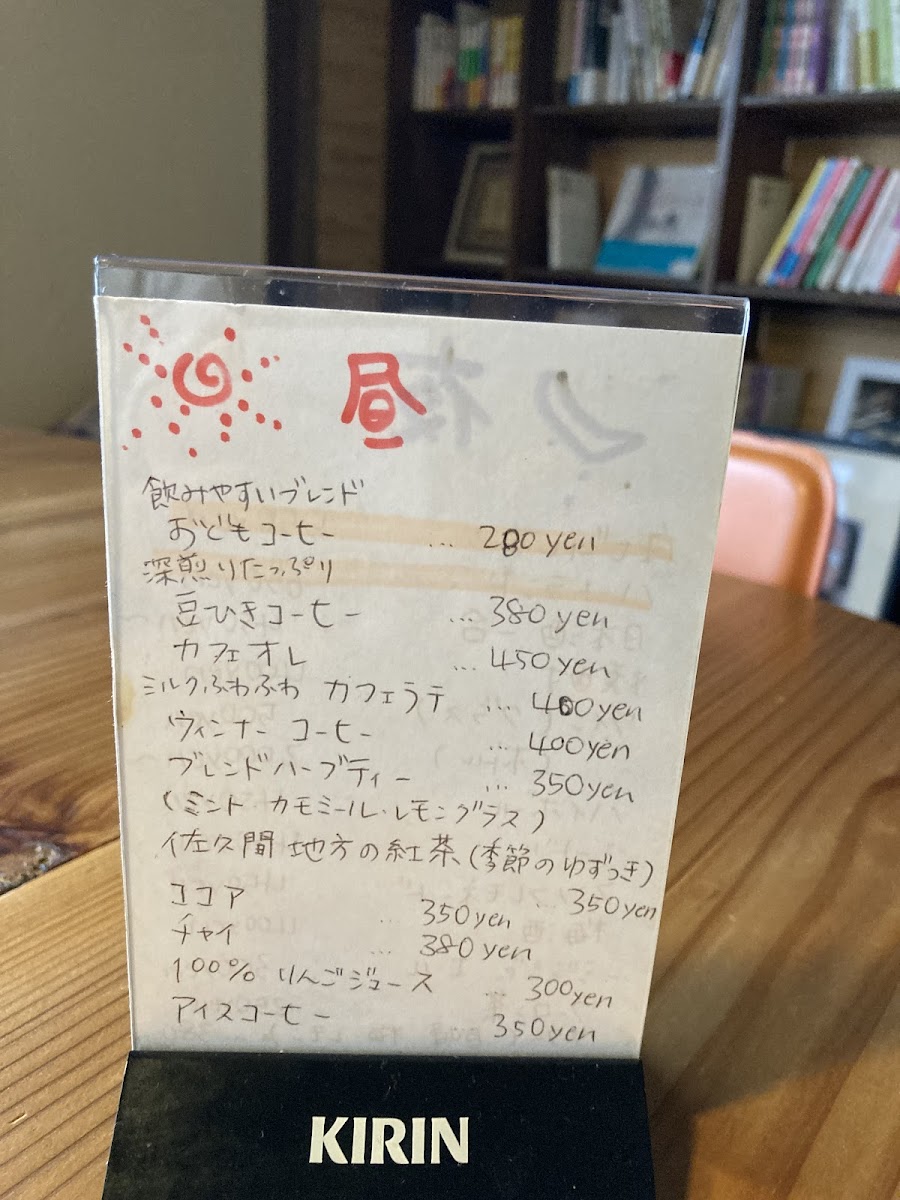 昼
飲みやすいブレンド
おどもコーヒー ... 280yen
深煎りたっぷり
豆ひきコーヒー ... 380yen
カフェオレ ... 450yen
ミルクふわふわ カフェラテ ... 400yen
ウィンナーコーヒー ... 400yen
ブレンドハーブティー ... 350yen
(ミント カモミール・レモングラス)
佐久間地方の紅茶(季節のゆずつき)
... 350yen
ココア ... 350yen
チャイ ... 380yen
100% りんごジュース ... 300yen
アイスコーヒー 350yen
KIRIN